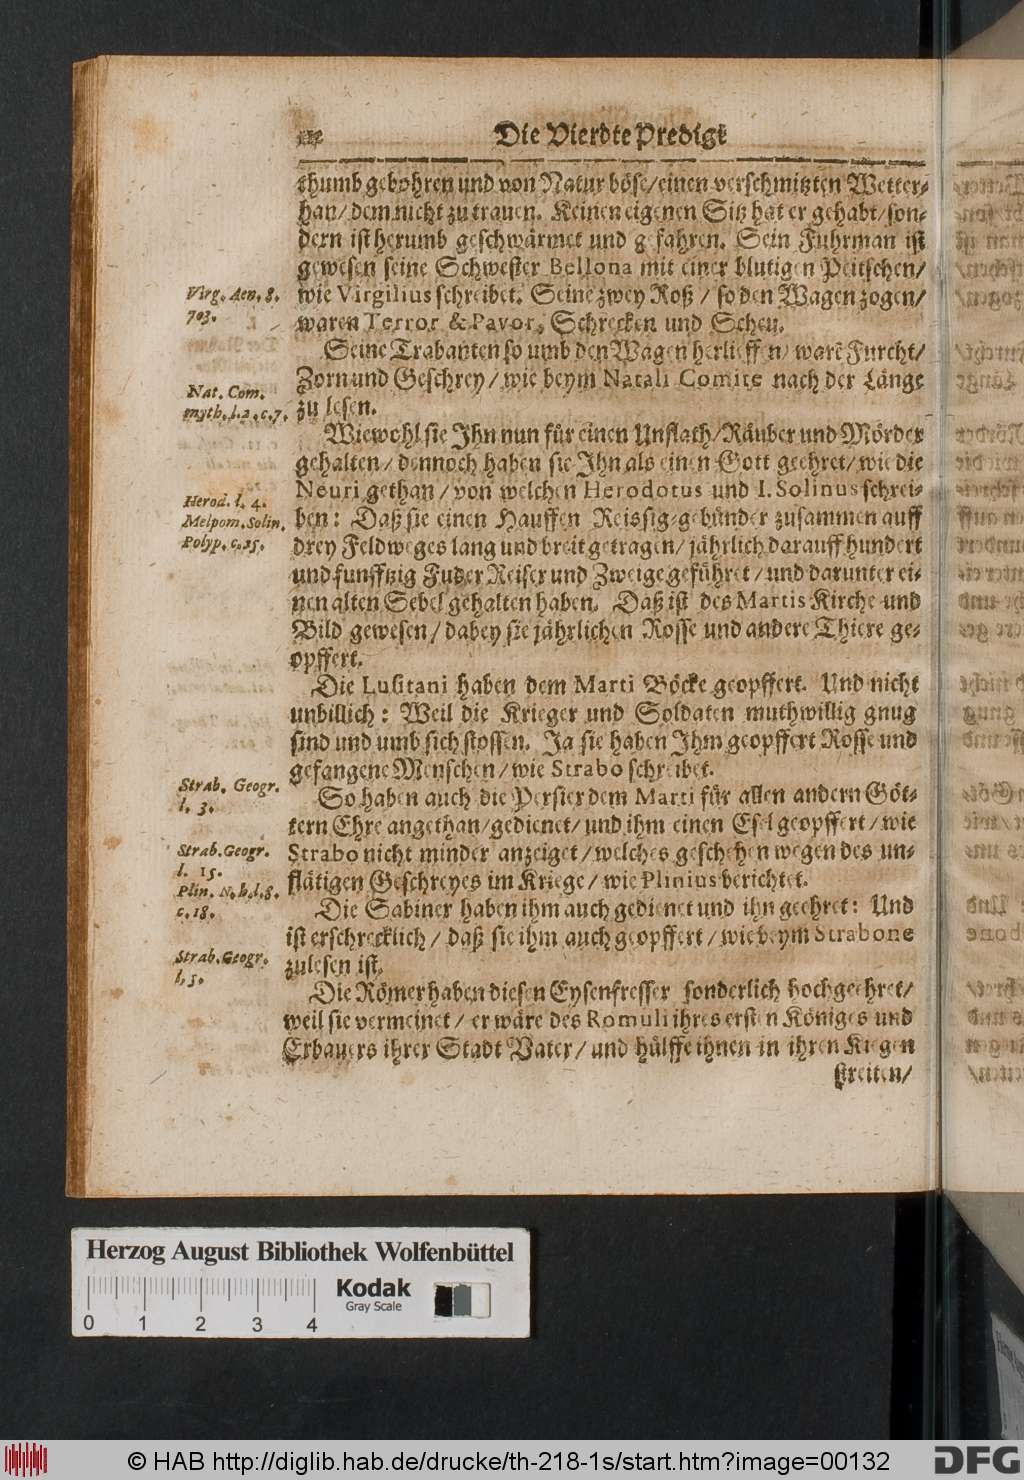 Die Vierdte Predigt
thumb gebohren und von Natur böse/einen verschmitzten Wetter-
han/ dem nicht zu trauen. Keinen eigenen Sitz hat er gehabt/son-
dern ist herumb geschwärmet und gefahren. Sein Fuhrman ist
gewesen seine Schwester Bellona mit einer blutigen Peitschen/
Virg. Aen. 8.
703.
wie Virgilius schreibet. Seine zwey Roß / so den Wagen zogen/
waren Terror & Pavor, Schrecken und Scheu.
Seine Trabanten so umb den Wagen herlieffen/ warē Furcht/
Zorn und Geschrey / wie beym Natali Comite nach der Länge
Nat. Com.
myth. l. 2. c. 7.
zu lesen.
Wiewohl sie Ihn nun für einen Unflath/Räuber und Mörder
gehalten / dennoch haben sie Ihn als einen Gott geehret/ wie die
Neuri gethan / von welchen Herodotus und I. Solinus schrei-
Herod. l. 4.
Melpom. Solin.
Polyp. c. 15.
ben: Daß sie einen Hauffen Reissig-gebünder zusammen auff
drey Feldweges lang und breit getragen/ jährlich darauff hundert
und funfftzig Fuder Reiser und Zweige geführet / und darunter ei-
nen alten Sebel gehalten haben. Daß ist des Martis Kirche und
Bild gewesen / dabey sie jährlichen Rosse und andere Thiere ge-
opffert.
Die Lusitani haben dem Marti Böcke geopffert. Und nicht
unbillich: Weil die Krieger und Soldaten muthwillig gnug
sind und umb sich stossen. Ja sie haben Ihm geopffert Rosse und
gefangene Menschen / wie Strabo schreibet.
Strab. Geogr.
l. 3.
So haben auch die Persier dem Marti für allen andern Göt-
tern Ehre angethan/gedienet/ und ihm einen Esel geopffert / wie
Strab. Geogr.
l. 15.
Strabo nicht minder anzeiget / welches geschehen wegen des un-
flätigen Geschreyes im Kriege / wie Plinius berichtet.
Plin. N. h. l. 8.
c. 18.
Die Sabiner haben ihm auch gedienet und ihn geehret: Und
ist erschrecklich / daß sie ihm auch geopffert / wie beym Strabone
Strab. Geogr.
l. 5.
zulesen ist.
Die Römer haben diesen Eysenfresser sonderlich hochgeehret/
weil sie vermeinet / er wäre des Romuli ihres ersten Königes und
Erbauers ihrer Stadt Vater / und hülffe ihnen in ihren Kiegen
streiten/
Herzog August Bibliothek Wolfenbüttel
Kodak
Gray Scale
0 1 2 3 4
© HAB http://diglib.hab.de/drucke/th-218-1s/start.htm?image=00132
DFG